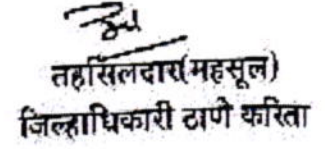 तहसिलदार(महसूल)
जिल्हाधिकारी ठाणे करिता